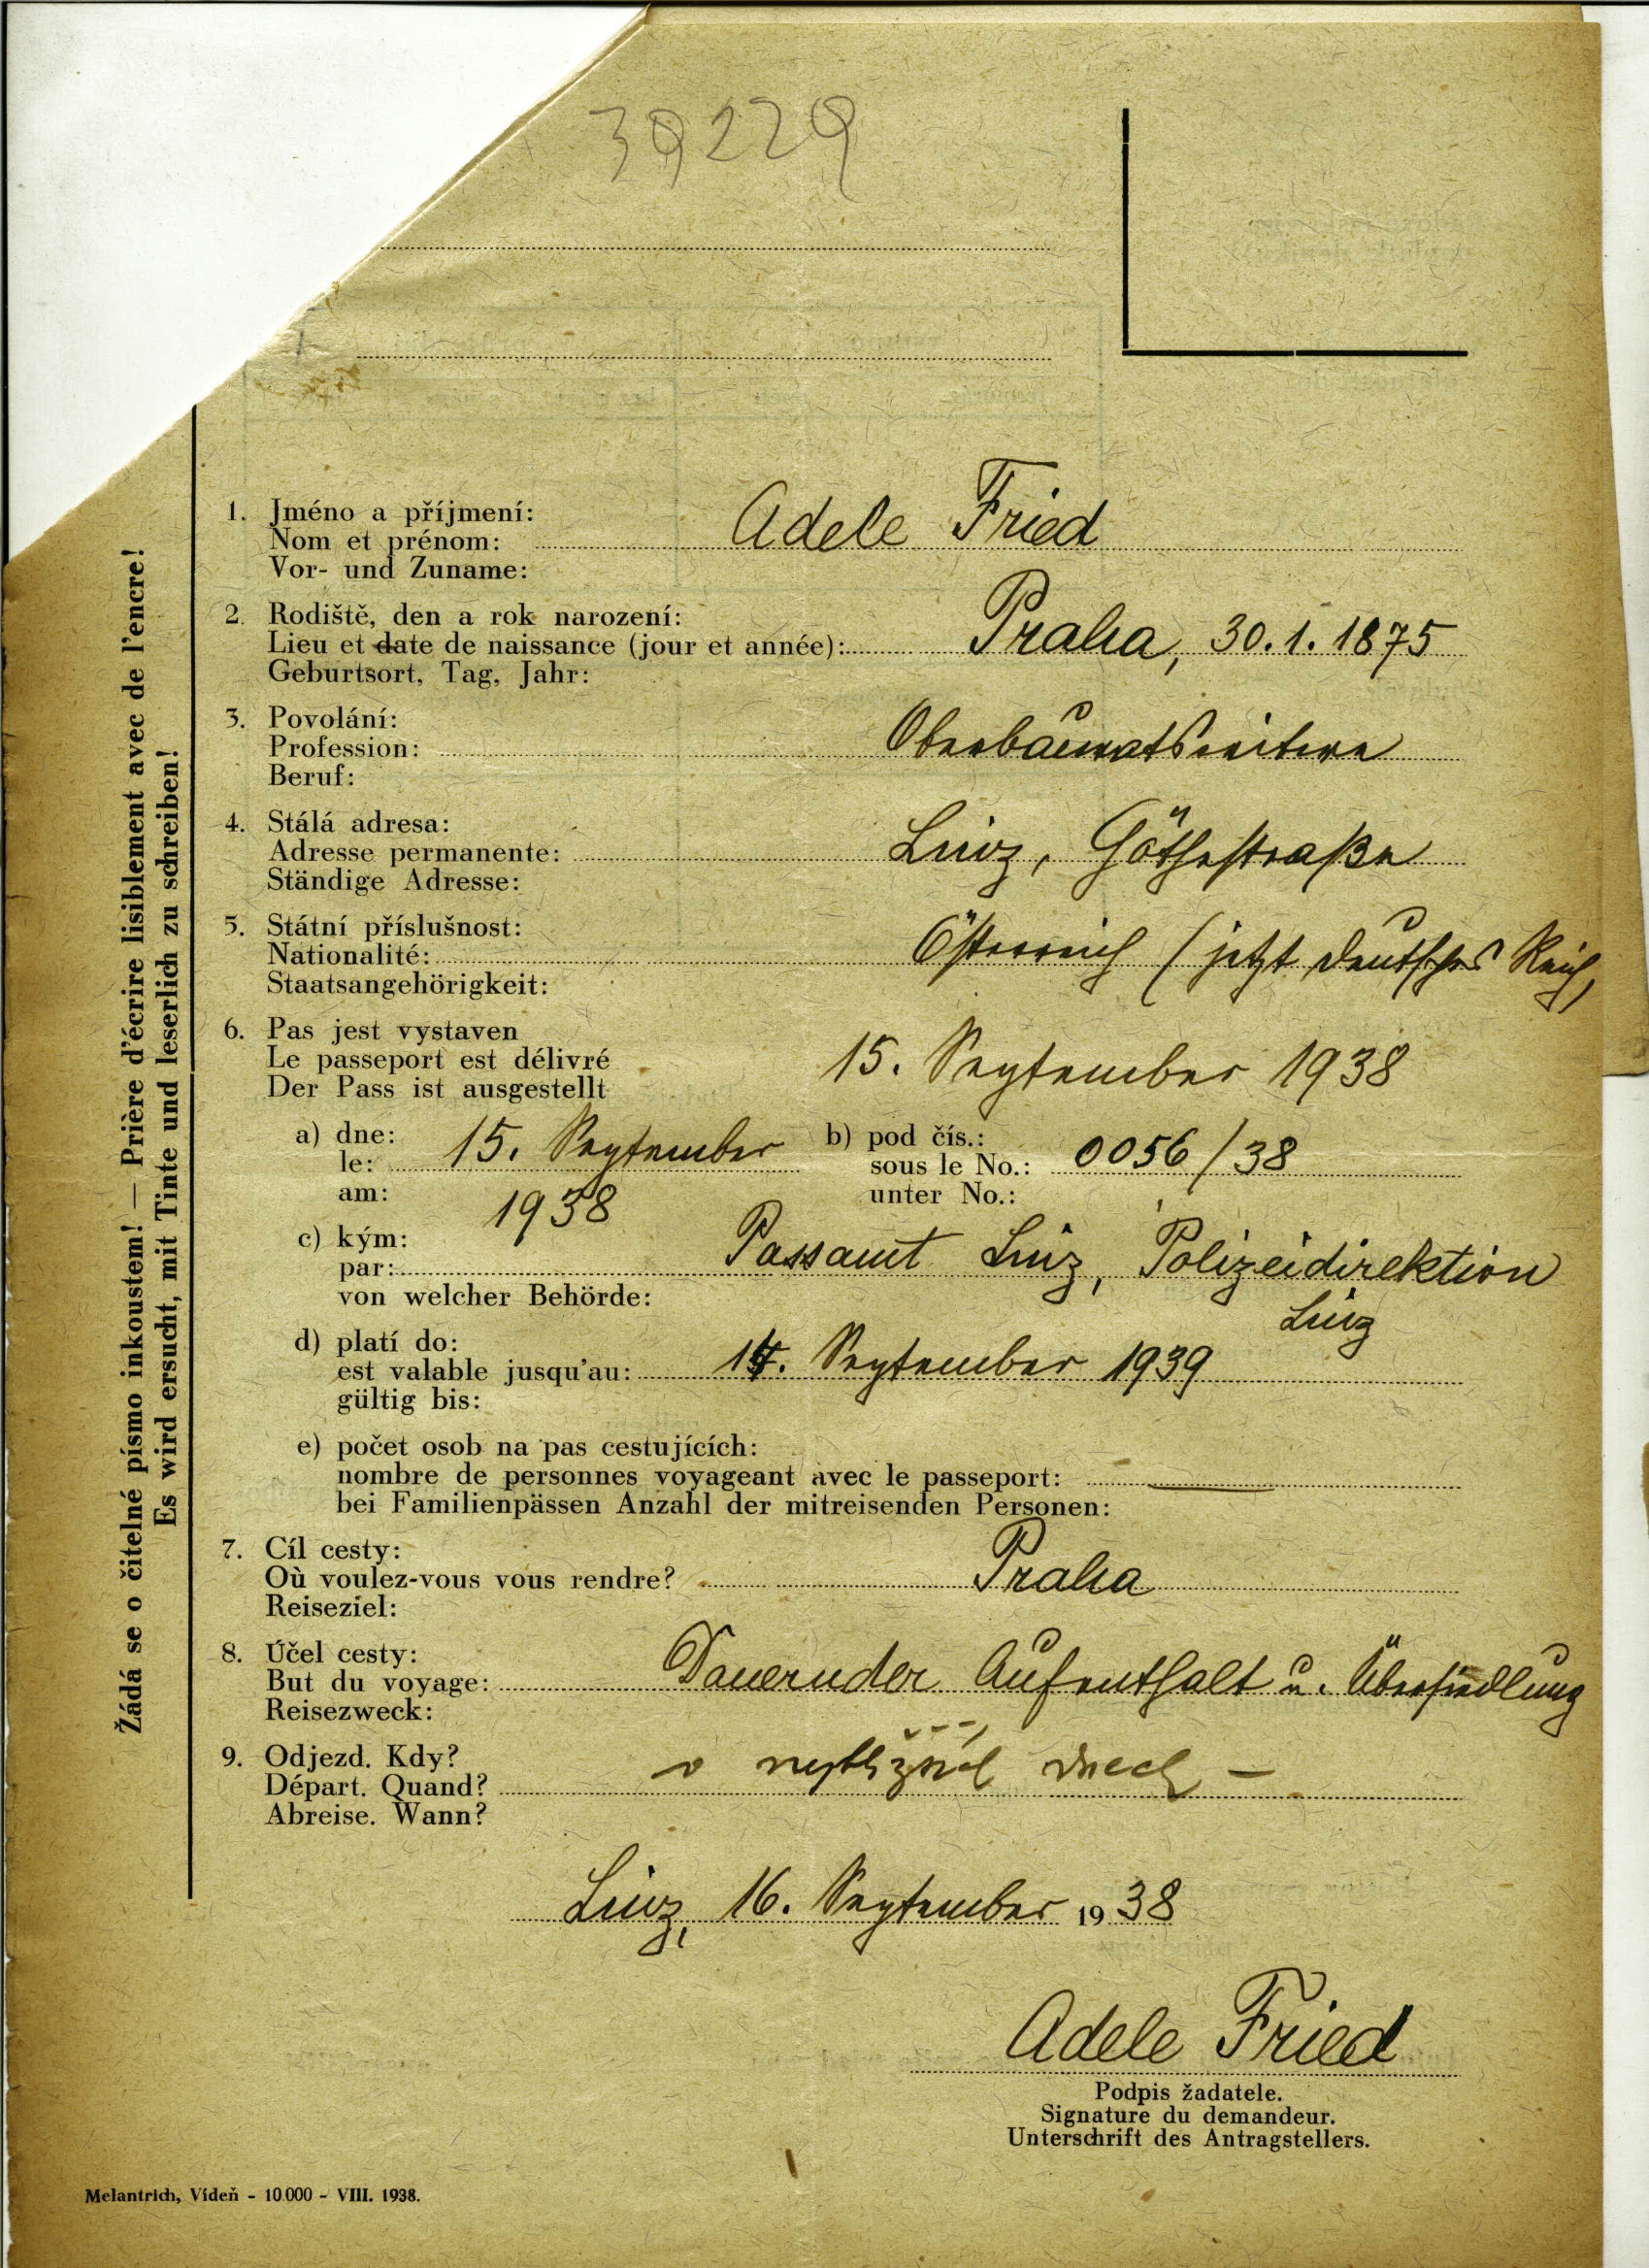 39229
1. Jméno a příjmení:
Nom et prénom: Adele Fried
Vor- und Zuname:
2. Rodiště, den a rok narození:
Lieu et date de naissance (jour et année): Praha, 30.1.1875
Geburtsort, Tag, Jahr:
3. Povolání:
Profession: Oberbauratswitwe
Beruf:
4. Stálá adresa:
Adresse permanente: Linz, Göthestraße
Ständige Adresse:
5. Státní příslušnost:
Nationalité: Österreich (jetzt deutsches Reich)
Staatsangehörigkeit:
6. Pas jest vystaven
Le passeport est délivré 15. September 1938
Der Pass ist ausgestellt
a) dne:
le: 15. September
am: 1938
b) pod čís.:
sous le No.: 0056/38
unter No.:
c) kým:
par: Passamt Linz, Polizeidirektion
von welcher Behörde: Linz
d) platí do:
est valable jusqu'au: 14. September 1939
gültig bis:
e) počet osob na pas cestujících:
nombre de personnes voyageant avec le passeport: —
bei Familienpässen Anzahl der mitreisenden Personen:
7. Cíl cesty:
Où voulez-vous vous rendre? Praha
Reiseziel:
8. Účel cesty:
But du voyage: Dauernder Aufenthalt u. Übersiedlung
Reisezweck:
9. Odjezd. Kdy?
Départ. Quand? v nejbližších dnech –
Abreise. Wann?
Linz, 16. September 1938
Adele Fried
Podpis žadatele.
Signature du demandeur.
Unterschrift des Antragstellers.
Melantrich, Vídeň - 10.000 - VIII. 1938.
Žádá se o čitelné písmo inkoustem! — Prière d'écrire lisiblement avec de l'encre!
Es wird ersucht, mit Tinte und leserlich zu schreiben!